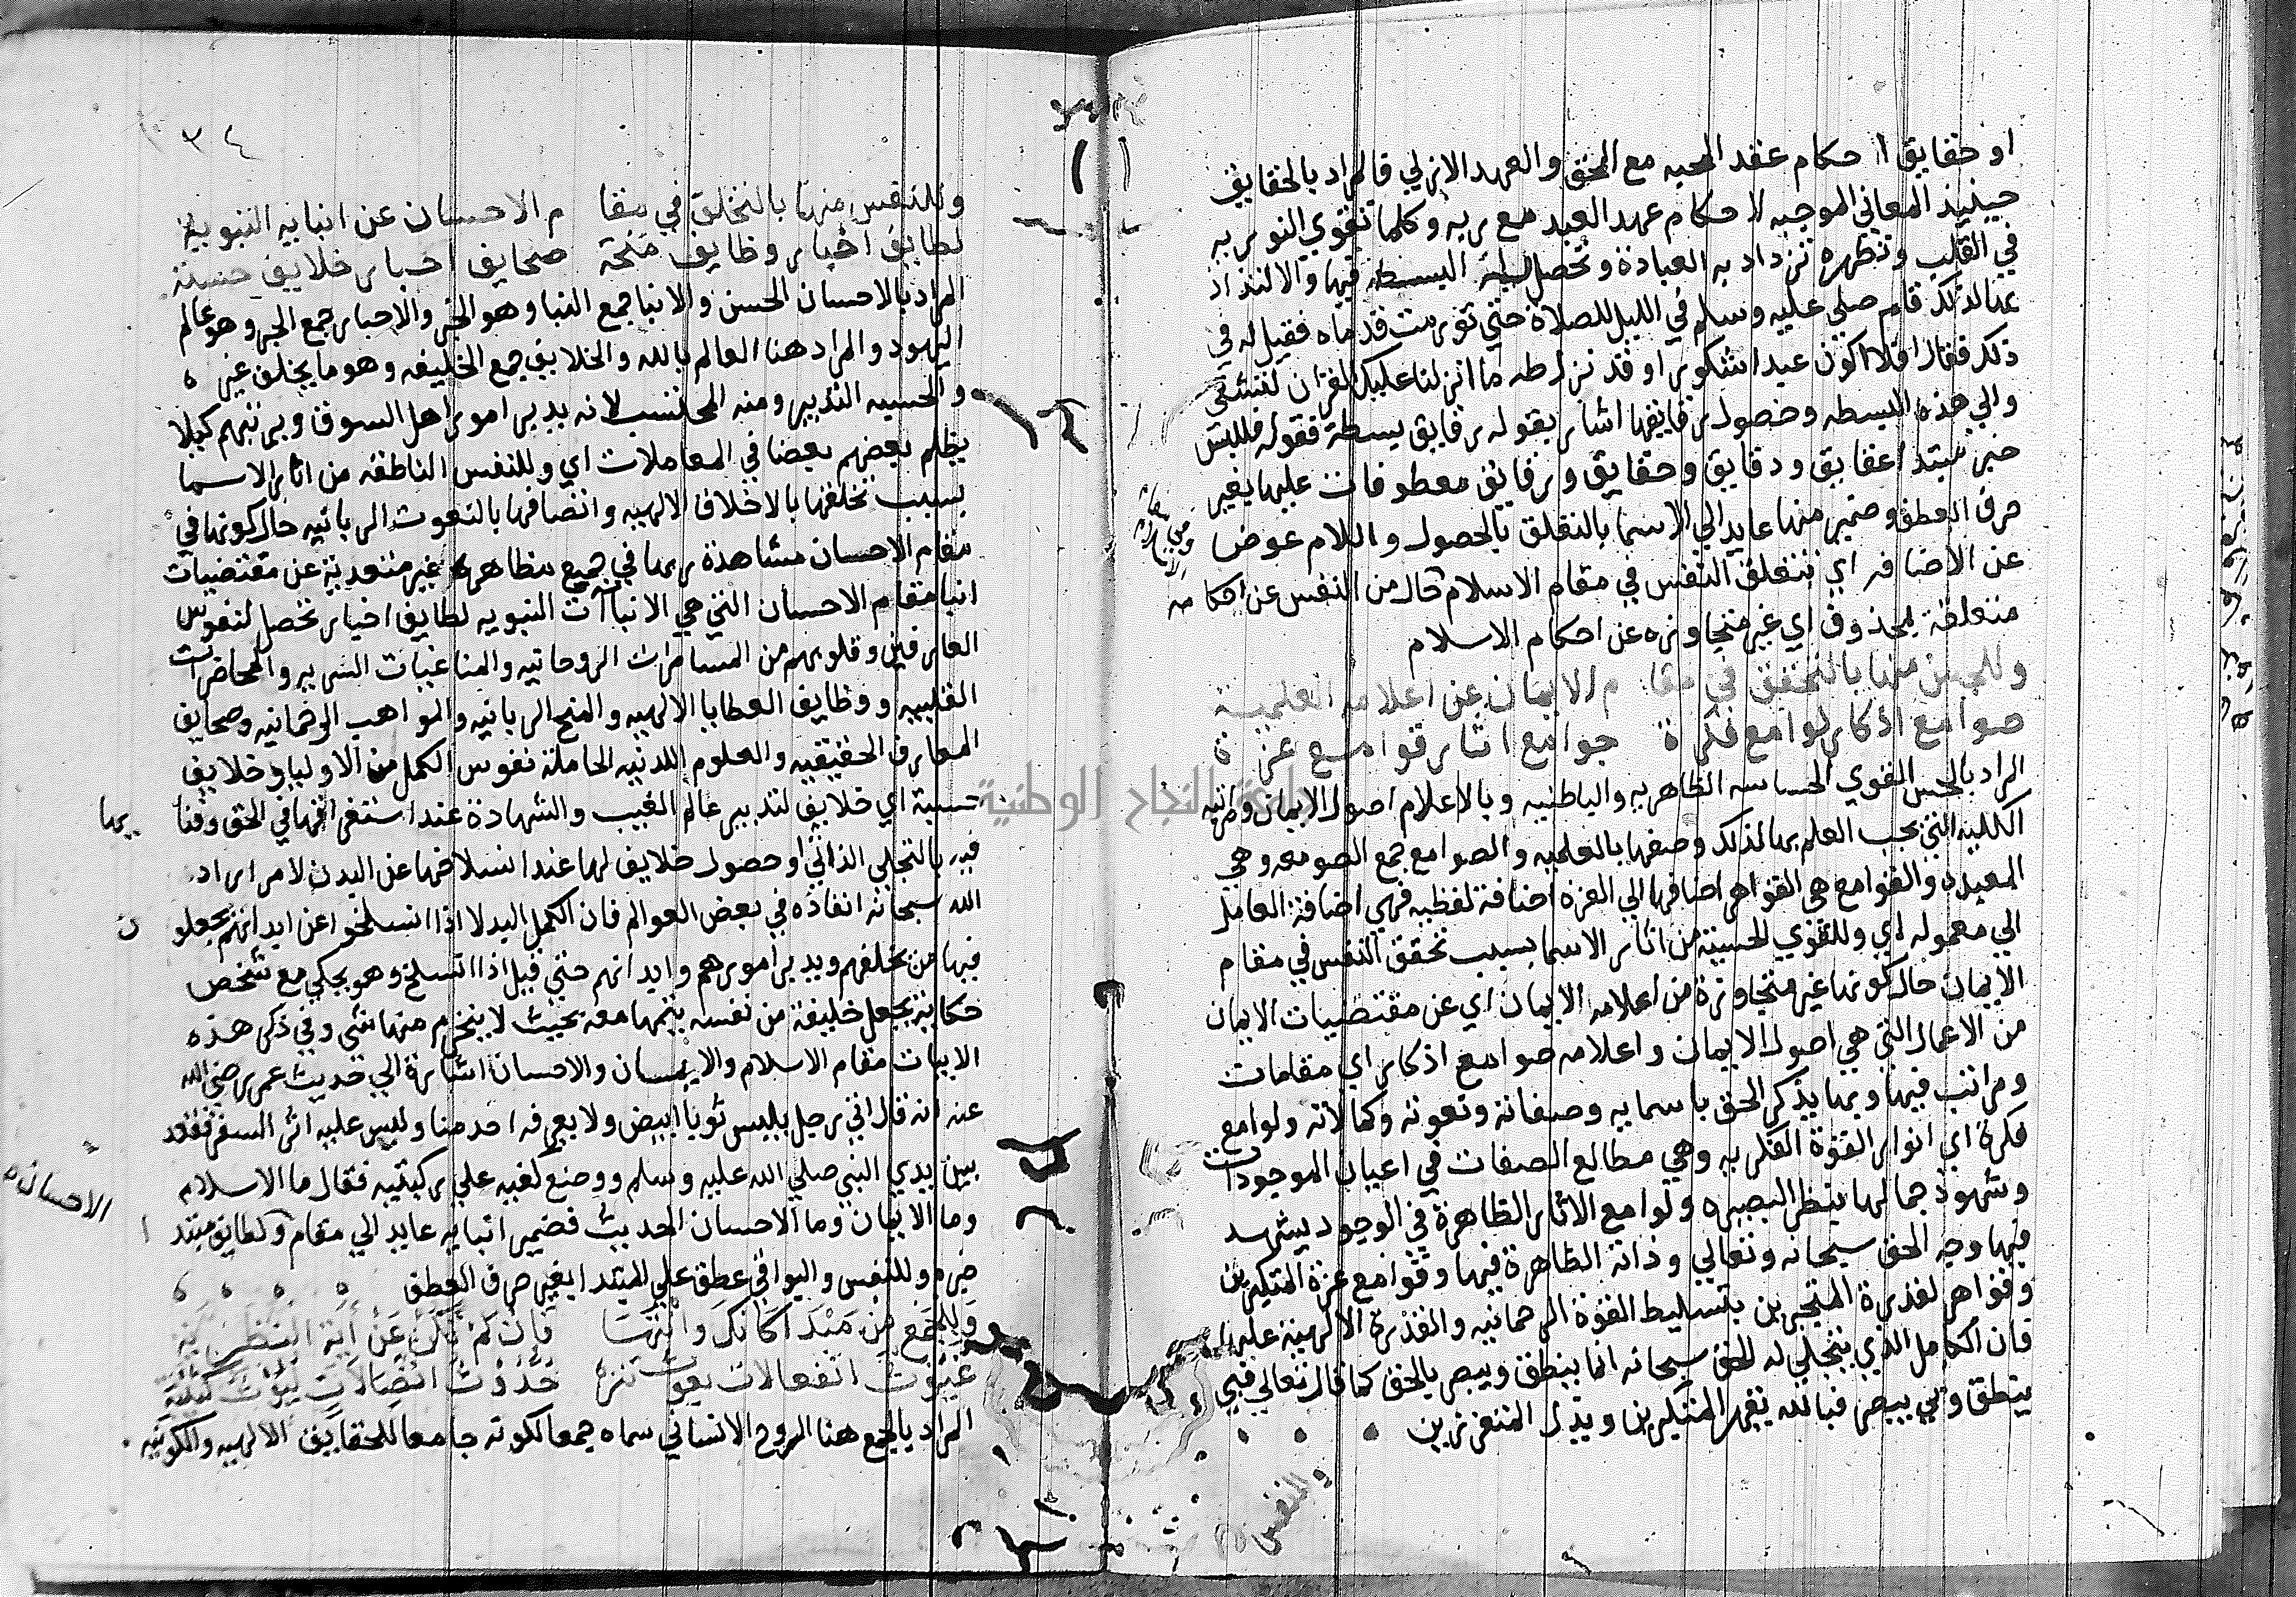 او حقايق احكام عقد المحبه مع الحق والعهد الازلي فالمراد بالحقايق
حينيذ المعاني الموجبه لاحكام عهد العبد مع ربه وكلما تقوي النور به
في القلب وتظهره تزداد به العبادة وتحصل البسطه فيها والالتذاذ
بها لذلك قام صلي عليه وسلم في الليل للصلاة حتي تورمت قدماه فقيل له في
ذلك فقال افلا اكون عبدا شكورا وقد نزل طه ما انزلنا عليك القران لتشقي
والي هذه البسطه وحصول رقايقها اشار بقوله رقايق بسطة فقوله فللبس
خبر مبتدا عقايق ودقايق وحقايق ورقايق معطوفات عليها بغير
حرف العطف وضمير منها عايد الي الاسما بالتعلق بالحصول واللام عوض
عن الاضافه اي بتعلق النفس في مقام الاسلام حال من النفس عن احكامه
متعلقة بمحذوف اي غير متجاوزه عن احكام الاسلام
وللحس منها بالتحقق في مقام الايمان عن اعلامه العلمية
صوامع اذكار لوامع فكرة جوامع اثار قوامع عزة
المراد بالحس القوي الحساسه الظاهريه والباطنيه وبالاعلام اصول الايمان ومراتبه
الكليه التي يجب العلم بها لذلك وصفها بالعلميه والصوامع جمع الصومعه وهي
المعبد والقوامع هي القواهر اضافها الي العزه اضافة لفظيه فهي اضافة العامل
الي معموله اي وللقوي الحسية من اثار الاسما بسبب تحقق النفس في مقام
الايمان حال كونها غير متجاوزة من اعلامه الايمان اي عن مقتضيات الايمان
من الاعمال التي هي اصول الايمان واعلامه صوامع اذكار اي مقامات
ومراتب فيها وبها يذكر الحق باسمايه وصفاته ونعوته وكمالاته ولوامع
فكرة اي انوار القوة الفكريه وهي مطالع الصفات في اعيان الموجودات
وشهود جمالها بنظر البصيره ولوامع الاثار الظاهرة في الوجود يشهد
فيها وجه الحق سبحانه وتعالي وذاته الظاهرة فيها وقوامع عزة المتكبرين
وقواهر لقدرة المتجبرين بتسليط القوة الرحمانيه والقدرة الالهية عليها
فان الكامل الذي يتجلي له الحق سبحانه انما ينطق ويبصر بالحق كما قال تعالي فبي
ينطق وبي يبصر فبالله يقهر المتكبرين ويذل المتعززين
وللنفس
٣٤
وللنفس منها بالتخلق في مقام الاحسان عن انبايه النبوية
لطايف اخبار وظايف منحة صحايف احبار خلايق حسبة
المراد بالاحسان الحسن والانبا جمع النبا وهو الخبر والاحبار جمع الحبر وهو عالم
اليهود والمراد هنا العالم بالله والخلايق جمع الخليفه وهو ما يخلف غيره
والحسبه التدبير ومنه المحتسب لانه يدبر امور اهل السوق ويرتبهم كيلا
يظلم بعضهم بعضا في المعاملات اي وللنفس الناطقه من اثار الاسما
بسبب تخلقها بالاخلاق الالهيه واتصافها بالنعوت الربانيه حال كونها في
مقام الاحسان مشاهدة ربها في جميع مظاهره غير متعدية عن مقتضيات
انبا مقام الاحسان التي هي الانباآت النبويه لطايف اخبار تحصل لنفوس
العارفين وقلوبهم من المسامرات الروحانيه والمناغيات السريه والمحاضرات
القلبيه ووظايف العطايا الالهيه والمنح الربانيه والمواهب الرحمانيه وصحايف
المعارف الحقيقيه والعلوم اللدنيه الحاملة نفوس الكمل من الاوليا وخلايق
حسبة اي خلايق لتدبير عالم الغيب والشهادة عند استغراقها في الحق وفنايها
فيه بالتجلي الذاتي او حصول خلايف لها عند انسلاخها عن البدن لامر اراد
الله سبحانه انفاذه في بعض العوالم فان الكمل البدلا اذا انسلخوا عن ابدانهم يجعلون
فيها من يخلفهم ويدبر امورهم وابدانهم حتي قيل اذا انسلخ وهو يحكي مع شخص
حكاية يجعل خليفة من نفسه يتمها معه بحيث لا ينخرم منها شي وفي ذكر هذه
الابيات مقام الاسلام والايمان والاحسان اشارة الي حديث عمر رضي الله
عنه انه قال اتي رجل يلبس ثوبا ابيض ولا يعرفه احد منا وليس عليه اثر السفر فقعد
بين يدي النبي صلي الله عليه وسلم ووضع كفيه علي ركبتيه فقال ما الاسلام
وما الايمان وما الاحسان الحديث فضمير انبايه عايد الي مقام الاحسان ولطايف مبتدا
خبره وللنفس والبواقي عطف علي المبتدا بغير حرف العطف
وللجمع من مبدا كانك وانتها فان لم تكن عن آية النظرية
غيوث انفعالات بعوث تنزه حدوث اتصالات ليوث كتيبة
المراد بالجمع هنا الروح الانساني سماه جمعا لكونه جامعا للحقايق الالهيه والكونيه
جامعة النجاح الوطنية